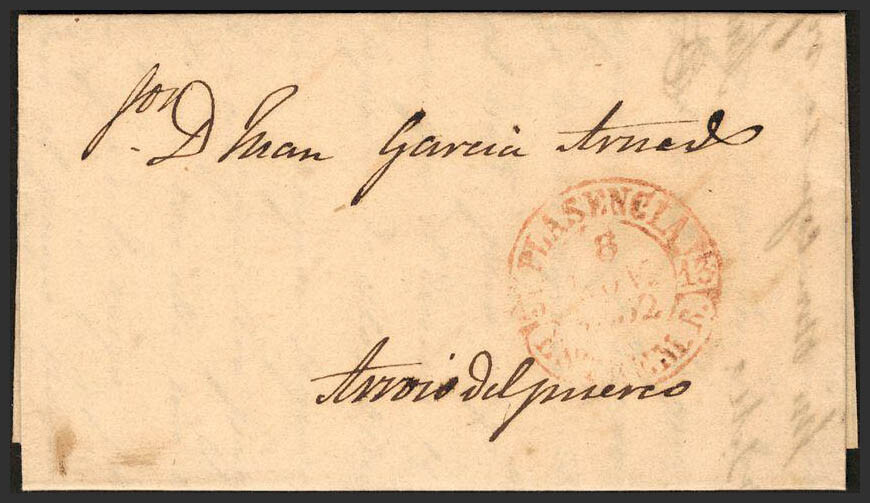 Sor
D Juan Garcia
PLASENCIA
8
13
R.
Arroio del puerco